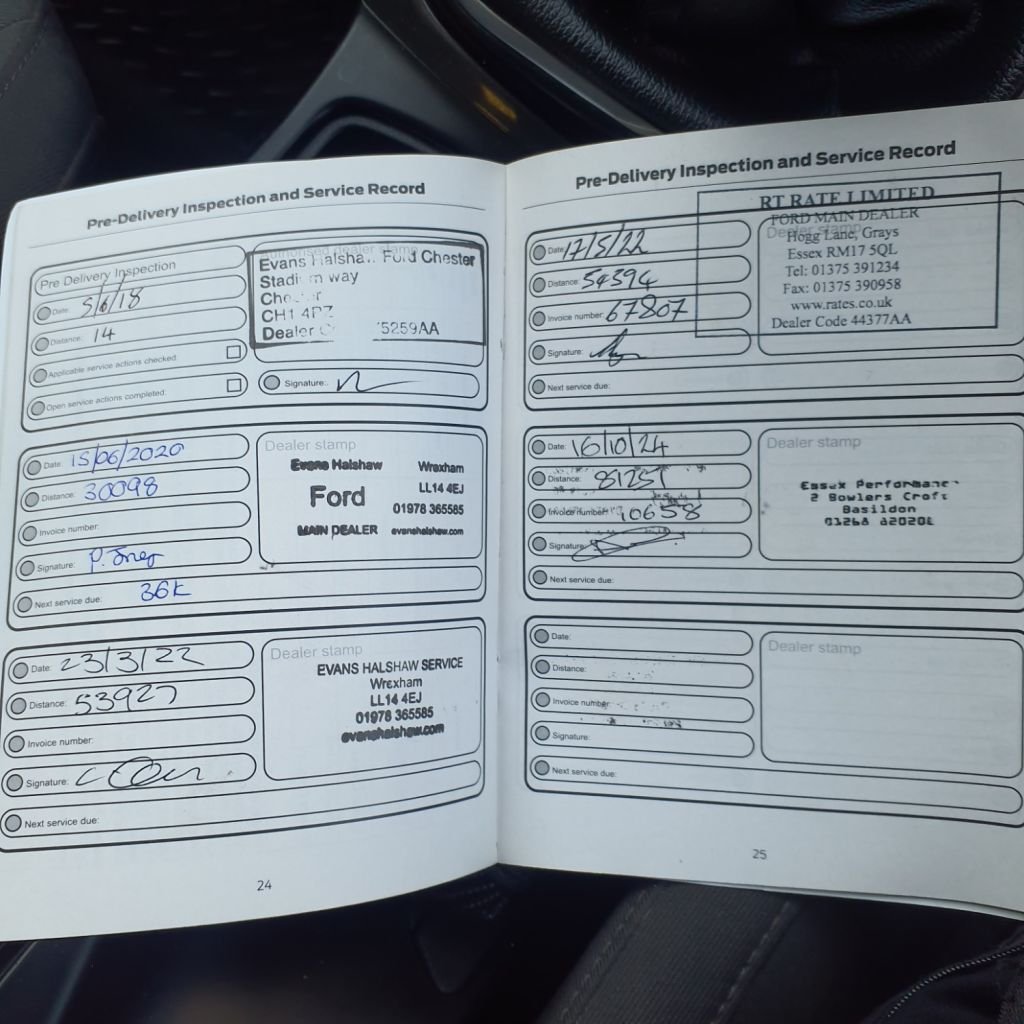 Pre-Delivery Inspection and Service Record
Pre Delivery Inspection
Date: 5/6/18
Distance: 14
Applicable service actions checked:
Open service actions completed:
Authorised dealer stamp
Evans Halshaw Ford Chester
Stadium way
CH1 4PZ
Dealer 5259AA
Signature:
Date: 15/06/2020
Distance: 30098
Invoice number:
Signature: P. Jones
Next service due: 36K
Dealer stamp
Evans Halshaw Wrexham
Ford LL14 4EJ
01978 365585
MAIN DEALER evanshalshaw.com
Date: 23/3/22
Distance: 53927
Invoice number:
Signature:
Next service due:
Dealer stamp
EVANS HALSHAW SERVICE
Wrexham
LL14 4EJ
01978 365585
evanshalshaw.com
24
Pre-Delivery Inspection and Service Record
Date: 17/5/22
Distance: 54394
Invoice number: 67807
Signature:
Next service due:
Dealer stamp
RT RATE LIMITED
FORD MAIN DEALER
Hogg Lane, Grays
Essex RM17 5QL
Tel: 01375 391234
Fax: 01375 390958
www.rates.co.uk
Dealer Code 44377AA
Date: 16/10/24
Distance: 81251
Invoice number: 10658
Signature:
Next service due:
Dealer stamp
Essex Performance
2 Bowlers Croft
Basildon
01268
Date:
Distance:
Invoice number:
Signature:
Next service due:
Dealer stamp
25